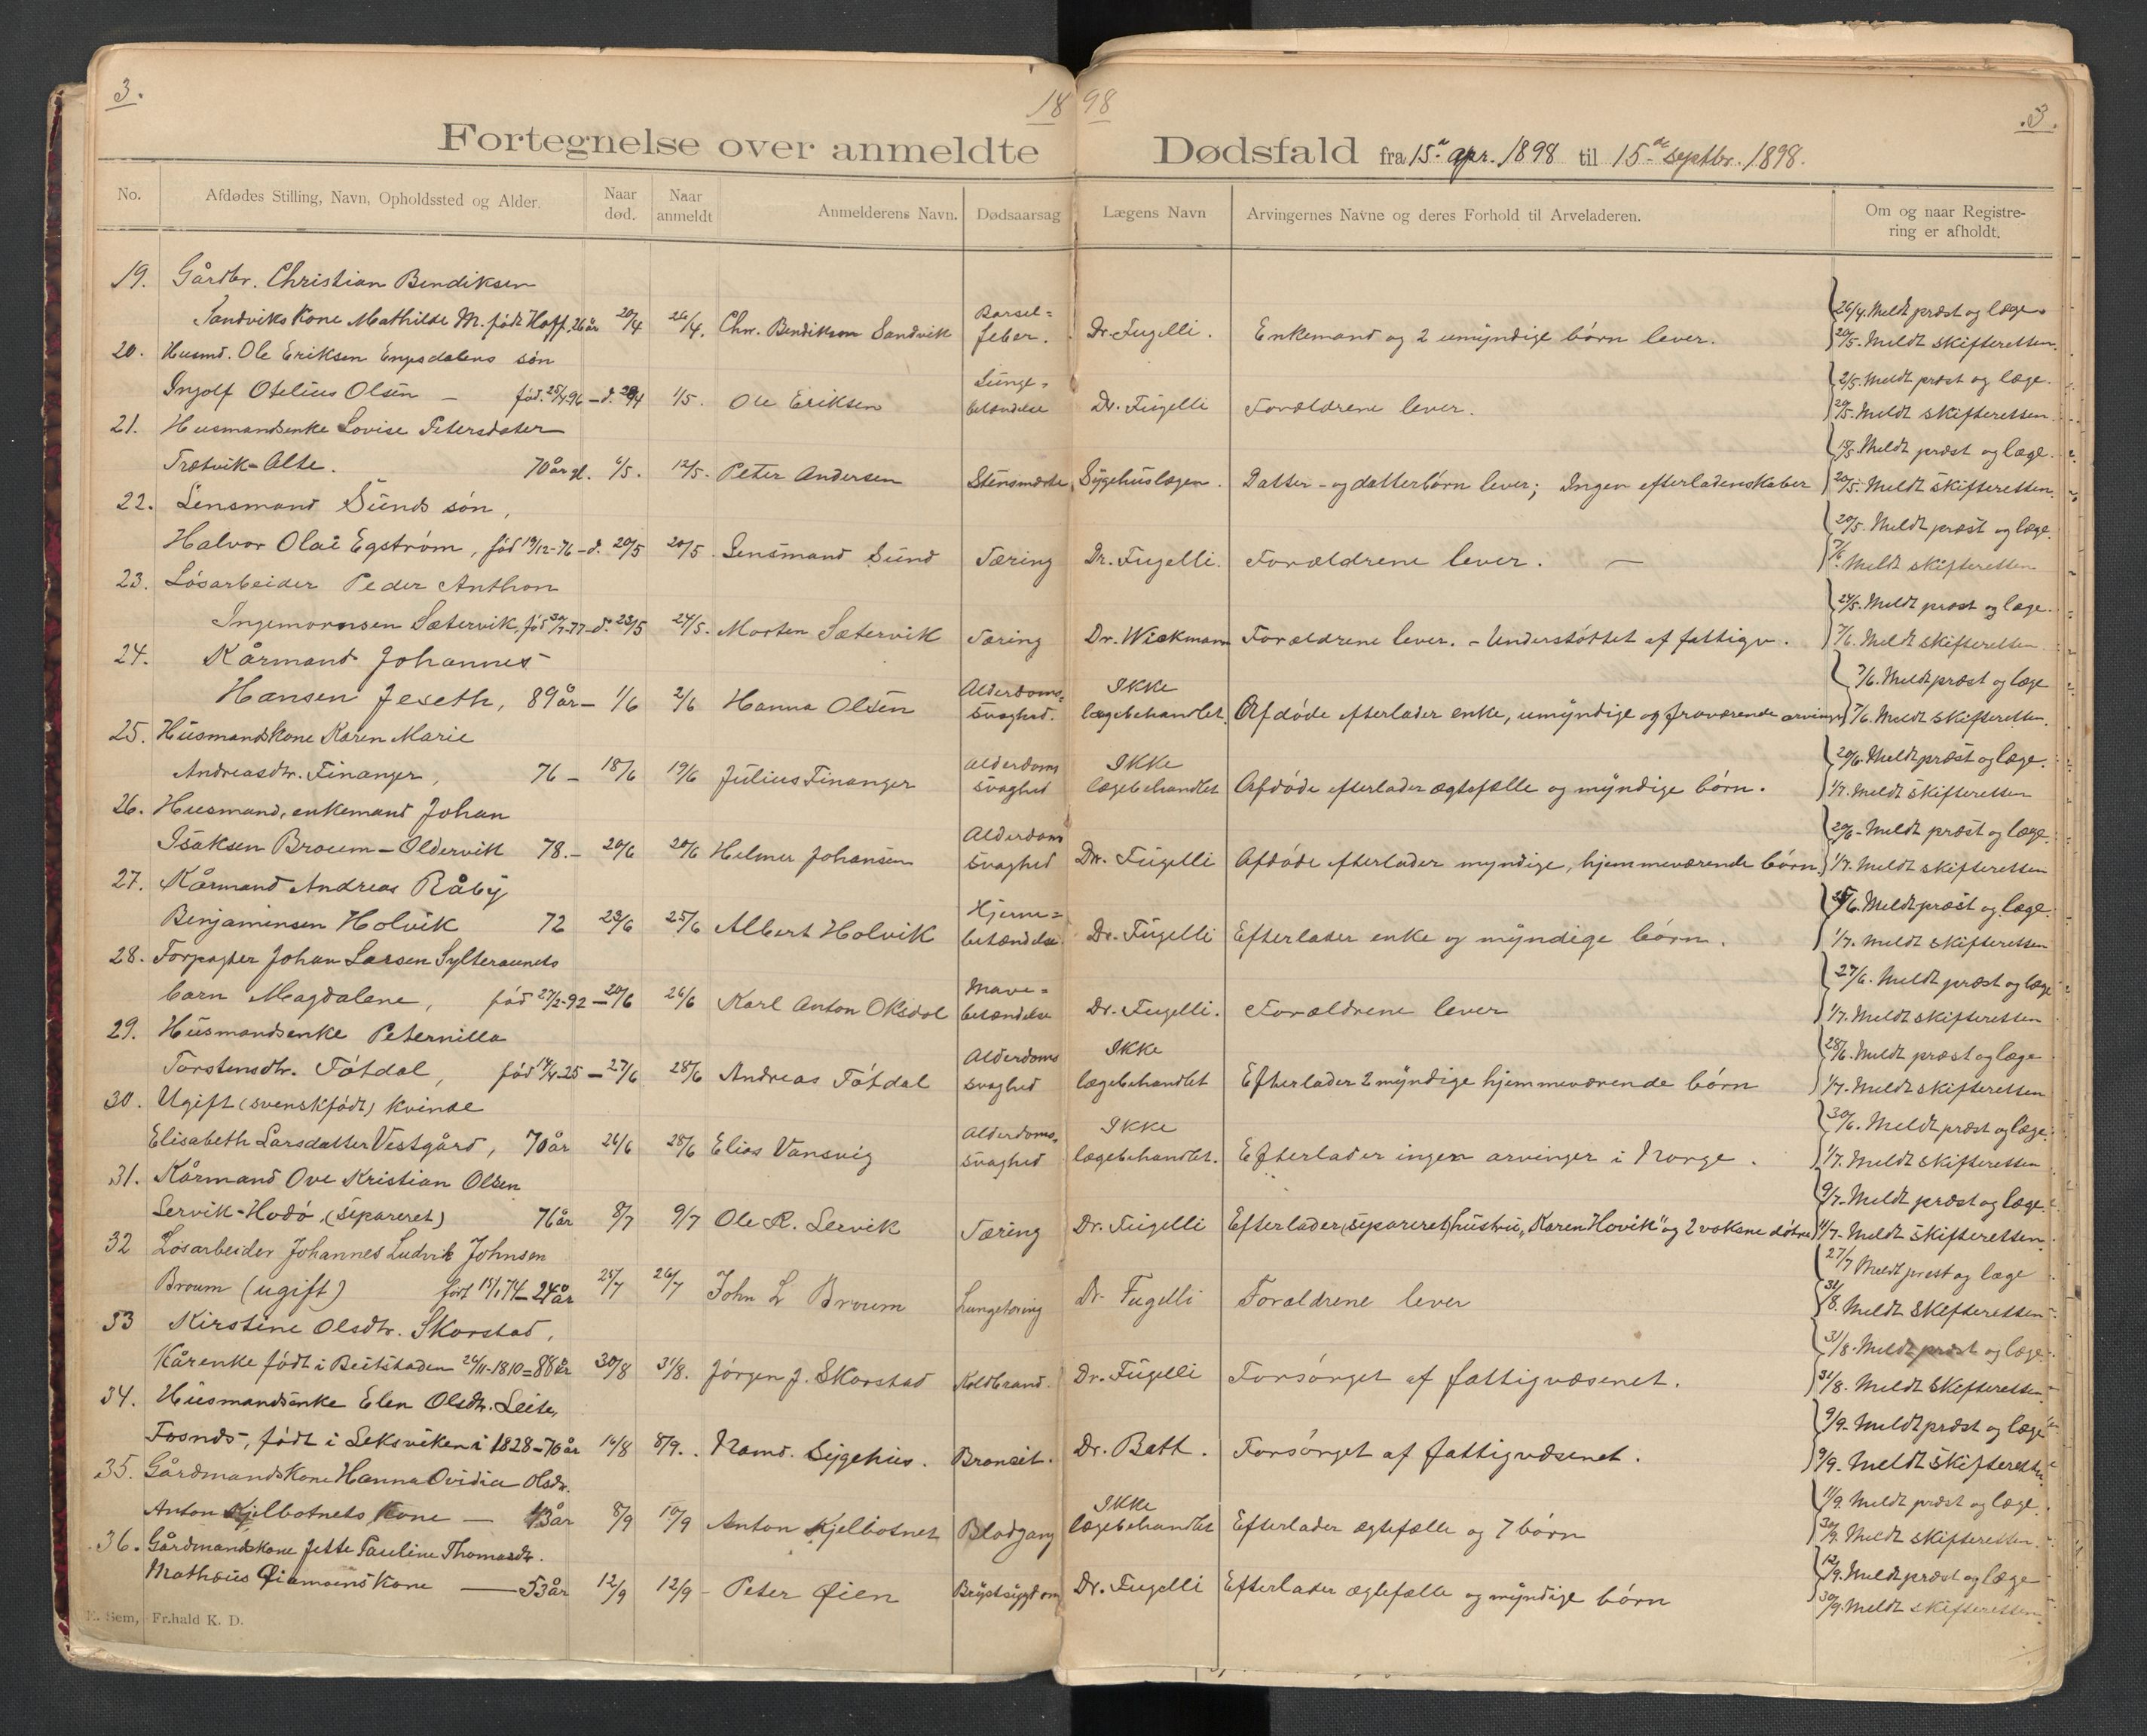 3.
18 98
.3.
Fortegnelse over anmeldte Dødsfald fra 15de apr. 1898 til 15de septbr. 1898.
No. Afdødes Stilling, Navn, Opholdssted og Alder. Naar død. Naar anmeldt Anmelderens Navn. Dødsaarsag Lægens Navn Arvingernes Navne og deres Forhold til Arveladeren. Om og naar Registrering er afholdt.
19. Gårdbr. Christian Bendiksen Barsel= 26/4. Meldt præst og læge
Sandviks Kone Mathilde M. født Hoff, 26 år 20/4 26/4. Chr. Bendiksen Sandvik feber. Dr. Fugelli. Enkemand og 2 umyndige börn lever. 20/5. Meldt skifteretten.
20. Husmd. Ole Eriksen Engsdalens sön Lunge= 2/5. Meldt præst og læge.
Ingolf Otelius Olsen – föd. 25/4-96 – d. 28/4 1/5. Ole Eriksen betændelse Dr. Fugelli Forældrene lever. 20/5. Meldt skifteretten.
21. Husmandsenke Lovise Petersdater Meldt præst og læge.
Trætvik-Alte. 70 år gl. 6/5. 12/5. Peter Andersen Stensmerte Sygehuslægen. Datter- og datterbörn lever; Ingen efterladenskaber 20/5. Meldt skifteretten.
22. Lensmand Sunds sön, 20/5. Meldt præst og læge.
Halvor Olai Egström, föd 19/12-76 – d. 20/5 20/5 Lensmand Sund Tæring Dr. Fugelli. Forældrene lever. – 7/6. Meldt skifteretten
23. Lösarbeider Peder Anthon 24/5. Meldt præst og læge.
Ingemornsen Sætervik, föd 30/7-77 – d. 23/5 24/5. Morten Sætervik Tæring Dr. Wickmann Forældrene lever. – Understöttet af fattigv. 7/6. Meldt skifteretten.
24. Kårmand Johannes Alderdoms= Ikke 7/6. Meldt præst og læge
Hansen Jeseth, 89 år – 1/6 2/6 Hanna Olsen svaghed. lægebehandlet. Afdöde efterlader enke, umyndige og fraværende arvinger 7/6. Meldt skifteretten.
25. Husmandskone Karen Marie Alderdoms Ikke 20/6. Meldt præst og læge.
Andreasdtr. Finanger, 76 – 18/6 19/6 Julius Finanger svaghed lægebehandlet Afdöde efterlader ægtefælle og myndige börn. 1/7. Meldt skifteretten
26. Husmand, enkemand Johan Alderdoms 20/6 – Meldt præst og læge.
Isaksen Broum – Oldervik 78. – 20/6 20/6 Helmer Johansen svaghed Dr. Fugelli Afdöde efterlader myndige, hjemmeværende börn. 1/7. Meldt skifteretten
27. Kårmand Andreas Råby Hjerne= Meldt præst og læge.
Benjaminsen Holvik 72 23/6 25/6 Albert Holvik betændelse. Dr. Fugelli Efterlader enke og myndige börn. 1/7. Meldt skifteretten
28. Forpagter Johan Larsen Sylteraunets Mave= 27/6. Meldt præst og læge
barn Magdalene, föd 27/2-92 – 20/6 26/6 Karl Anton Oksdol betændelse Dr. Fugelli. Forældrene lever 1/7. Meldt skifteretten
29. Husmandsenke Peternilla Alderdoms Ikke 28/6. Meldt præst og læge
Torstensdtr. Tötdal, föd 14/4-25 – 27/6 28/6 Andreas Tötdal svaghed lægebehandlet Efterlader 2 myndige hjemmeværende börn 1/7. Meldt skifteretten
30. Ugift (svenskfödt) kvinde Alderdoms= Ikke 30/6. Meldt præst og læge.
Elisabeth Larsdatter Vestgård, 70 år 26/6 28/6 Elias Vansvig svaghed lægebehandlet. Efterlader ingen arvinger i Norge. 1/7. Meldt skifteretten
31. Kårmand Ove Kristian Olsen 9/7. Meldt præst og læge.
Servik-Hodö, (separeret) 76 år 8/7 9/7 Ole R. Servik Tæring Dr. Fugelli Efterlader (separeret) hustru, "Karen Hovik" og 2 voksne dötre 11/7 – Meldt skifteretten.
32 Lösarbeider Johannes Ludvik Johnsen 27/7 Meldt præst og læge
Broum (ugift) født 15/1 74 – 24 år 25/7 26/7 John L Broum Lungetæring Dr. Fugelli Forældrene lever 31/8. Meldt skifteretten
33 Kirstine Olsdtr. Skorstad, 31/8. Meldt præst og læge.
Kårenke födt i Beitstaden 26/11-1810 = 88 år 30/8 31/8. Jörgen J. Skorstad Koldbrand. Dr. Fugelli Forsörget af fattigvæsenet. 31/8. Meldt skifteretten
34. Husmandsenke Elen Olsdtr. Leite, 9/9. Meldt præst og læge
Fosnæs, födt i Leksviken i 1828 – 70 år 16/8 8/9. Namd. Sygehus. Bronkit. Dr. Batt. Forsörget af fattigvæsenet. 9/9. Meldt skifteretten
35. Gårdmandskone Hanna Ovidia Olsdtr. Ikke 11/9. Meldt præst og læge.
Anton Kjelbotnets Kone – 43 år 8/9 10/9 Anton Kjelbotnet Blodgang lægebehandlet Efterlader ægtefælle og 7 börn 30/9. Meldt skifteretten.
36. Gårdmandskone Jette Pauline Thomasdtr. 12/9. Meldt præst og læge
Mathæus Øiamoens Kone – 53 år 12/9 12/9 – Peter Øien Brystsygdom Dr. Fugelli Efterlader ægtefælle og myndige börn 30/9. Meldt skifteretten.
E. Sem, Fr.hald K. D.